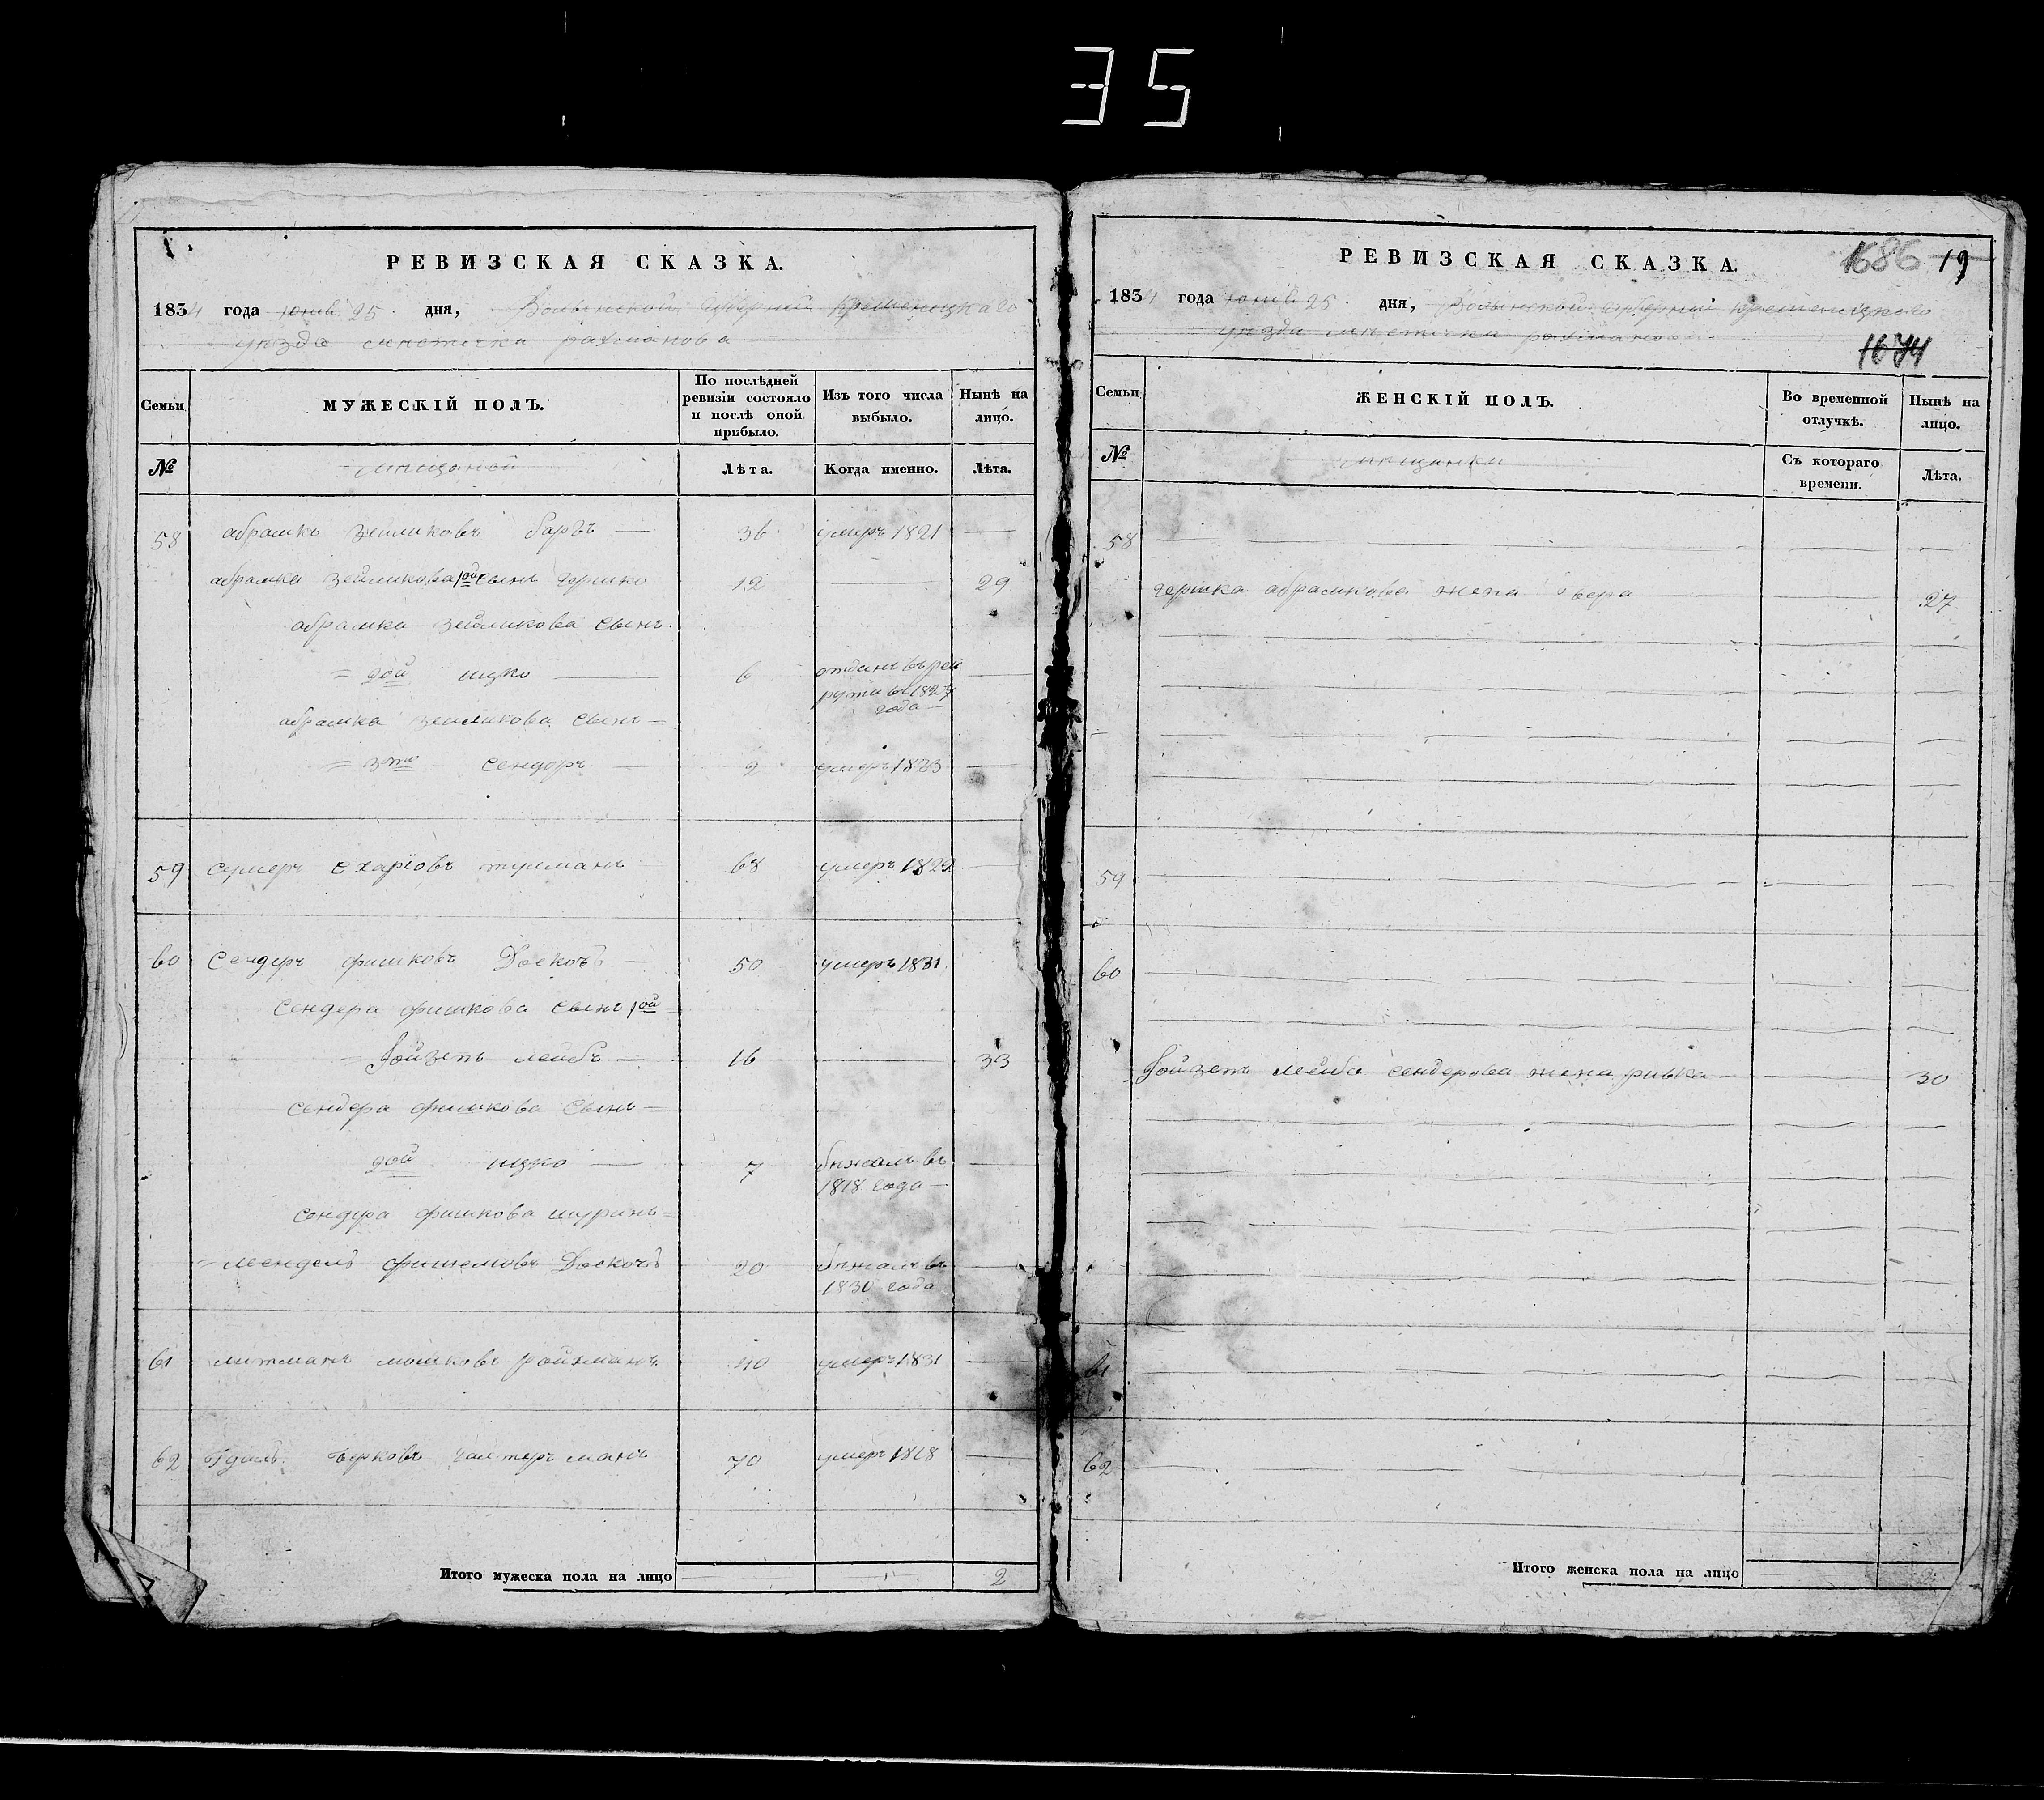 35
РЕВИЗСКАЯ СКАЗКА.
1834 года июня 25 дня, Волынской губернии Кременецкаго
уезда местечка рахманова
Семьи МУЖЕСКІЙ ПОЛЪ. По послѣдней ревизіи состояло и послѣ оной прибыло. Изъ того числа выбыло. Нынѣ на лицо.
№ Лѣта. Когда именно. Лѣта.
58 абрамко зейликовъ 36 умеръ 1821
абрамка зейликова 1ой сынъ гершко 12 29
абрамка зейликова сынъ
2ой ицко 6 отданъ въ рекруты въ 1827 года
абрамка зейликова сынъ
3тій сендеръ 2 умеръ 1823
59 68 умеръ 1822
60 Сендеръ фишковъ 50 умеръ 1831
сендера фишкова сынъ 1ой
лейбъ 16 33
сендера фишкова сынъ
2ой ицко 7 бежалъ въ 1818 года
сендера фишкова шуринъ
мендель 20 бежалъ въ 1830 года
61 мошковъ ройхманъ 40 умеръ 1831
62 берковъ 70 умеръ 1818
Итого мужеска пола на лицо 2
РЕВИЗСКАЯ СКАЗКА.
1686 19
1834 года июня 25 дня, Волынской губерніи Кременецкаго
уезда местечка рахманова
1674
Семьи ЖЕНСКІЙ ПОЛЪ. Во временной отлучкѣ. Нынѣ на лицо.
№ мещанки Съ котораго времени. Лѣта.
58
гершка абрамкова жена 27
59
60
лейба сендерова жена ривка 30
61
62
Итого женска пола на лицо